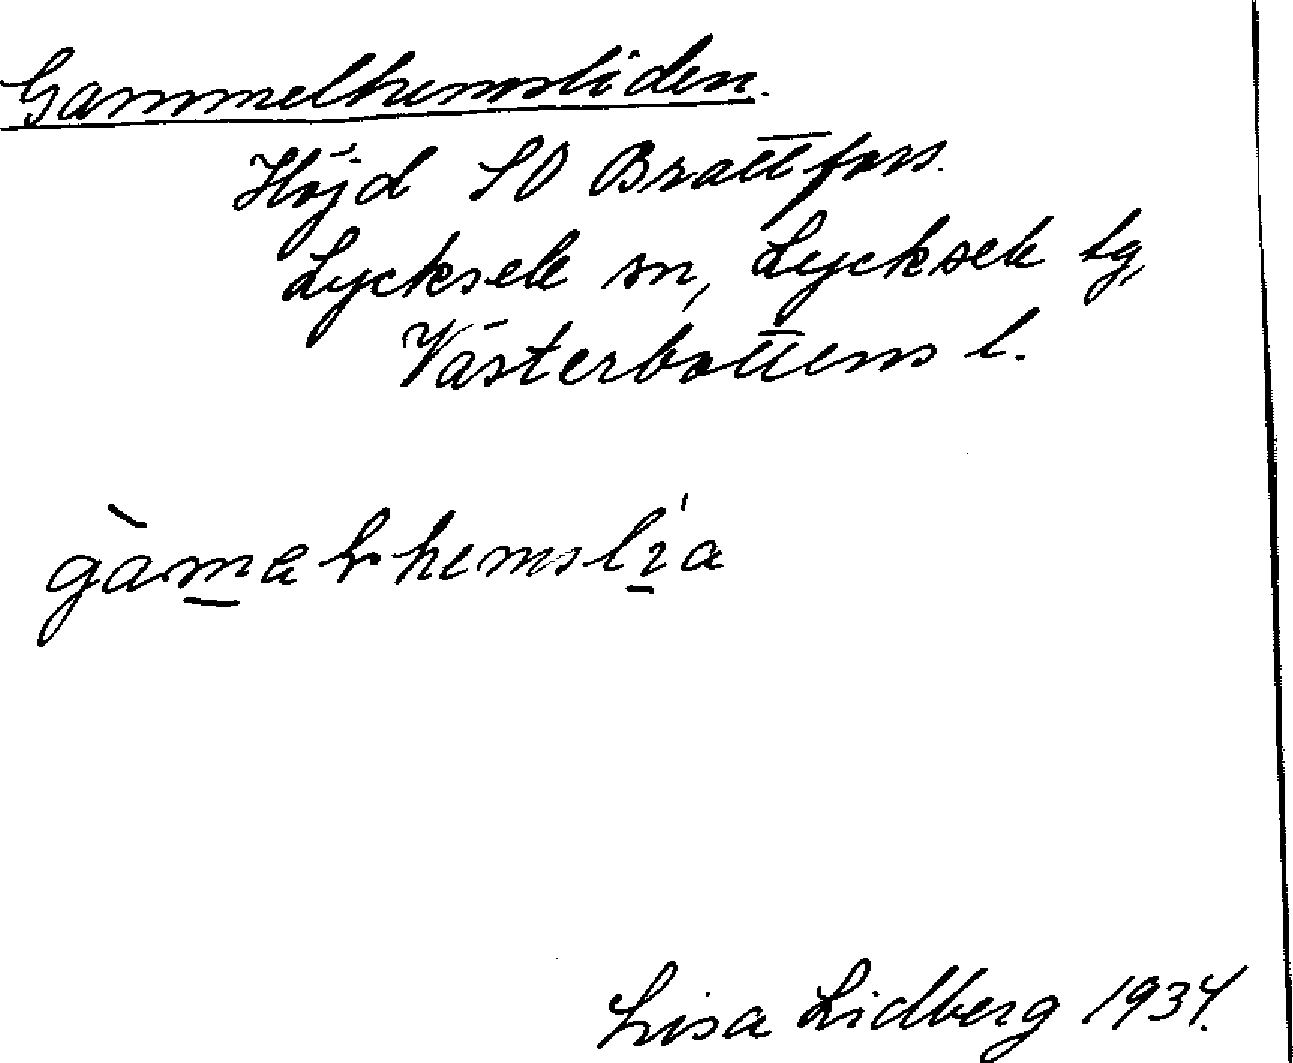 Gammelhemsliden.
Höjd SO Brattfors.
Lycksele sn, Lycksele tg,
Västerbottens l.
Lisa Lidberg 1934.